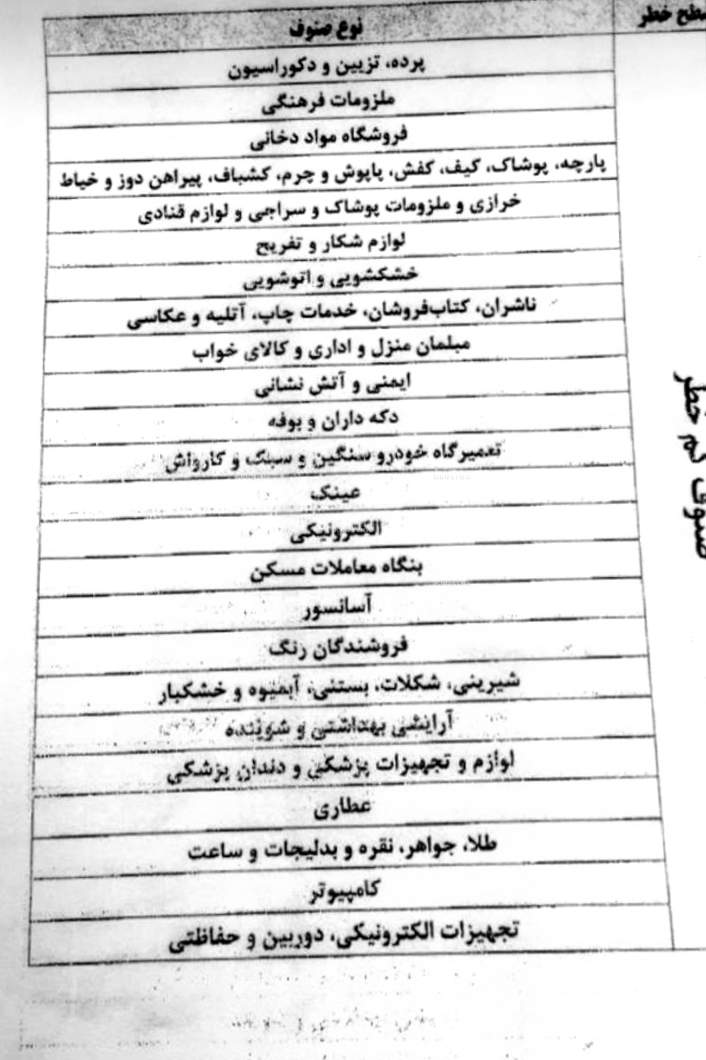 سطح خطر
نوع صنوف
صنوف کم خطر
پرده، تزیین و دکوراسیون
ملزومات فرهنگی
فروشگاه مواد دخانی
پارچه، پوشاک، کیف، کفش، پاپوش و چرم، کشباف، پیراهن دوز و خیاط
خرازی و ملزومات پوشاک و سراجی و لوازم قنادی
لوازم شکار و تفریح
خشکشویی و اتوشویی
ناشران، کتاب‌فروشان، خدمات چاپ، آتلیه و عکاسی
مبلمان منزل و اداری و کالای خواب
ایمنی و آتش نشانی
دکه داران و بوفه
تعمیرگاه خودرو سنگین و سبک و کارواش
عینک
الکترونیکی
بنگاه معاملات مسکن
آسانسور
فروشندگان رنگ
شیرینی، شکلات، بستنی، آبمیوه و خشکبار
آرایشی بهداشتی و شوینده
لوازم و تجهیزات پزشکی و دندان پزشکی
عطاری
طلا، جواهر، نقره و بدلیجات و ساعت
کامپیوتر
تجهیزات الکترونیکی، دوربین و حفاظتی